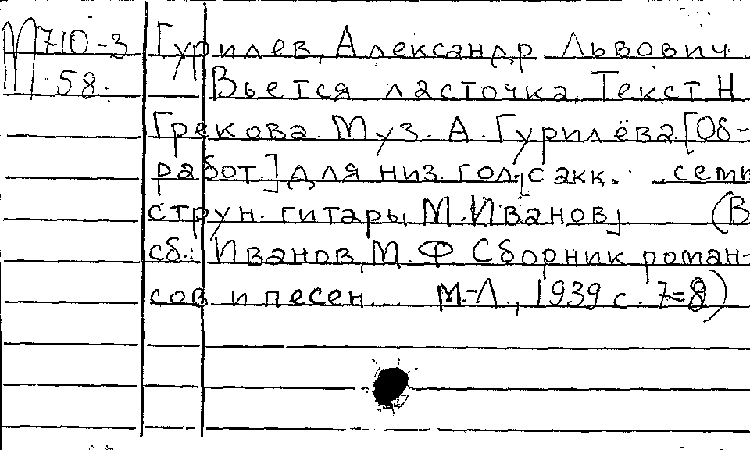 М710-3 Гурилев, Александр Львович
58. Вьется ласточка. Текст Н.
Грекова. Муз. А. Гурилёва. [Об-
работ] для низ. гол. с акк. семи
струн. гитары М. Иванов (В
сб.: Иванов, М. Ф. Сборник роман-
сов и песен... М.-Л., 1939 с. 7=8)